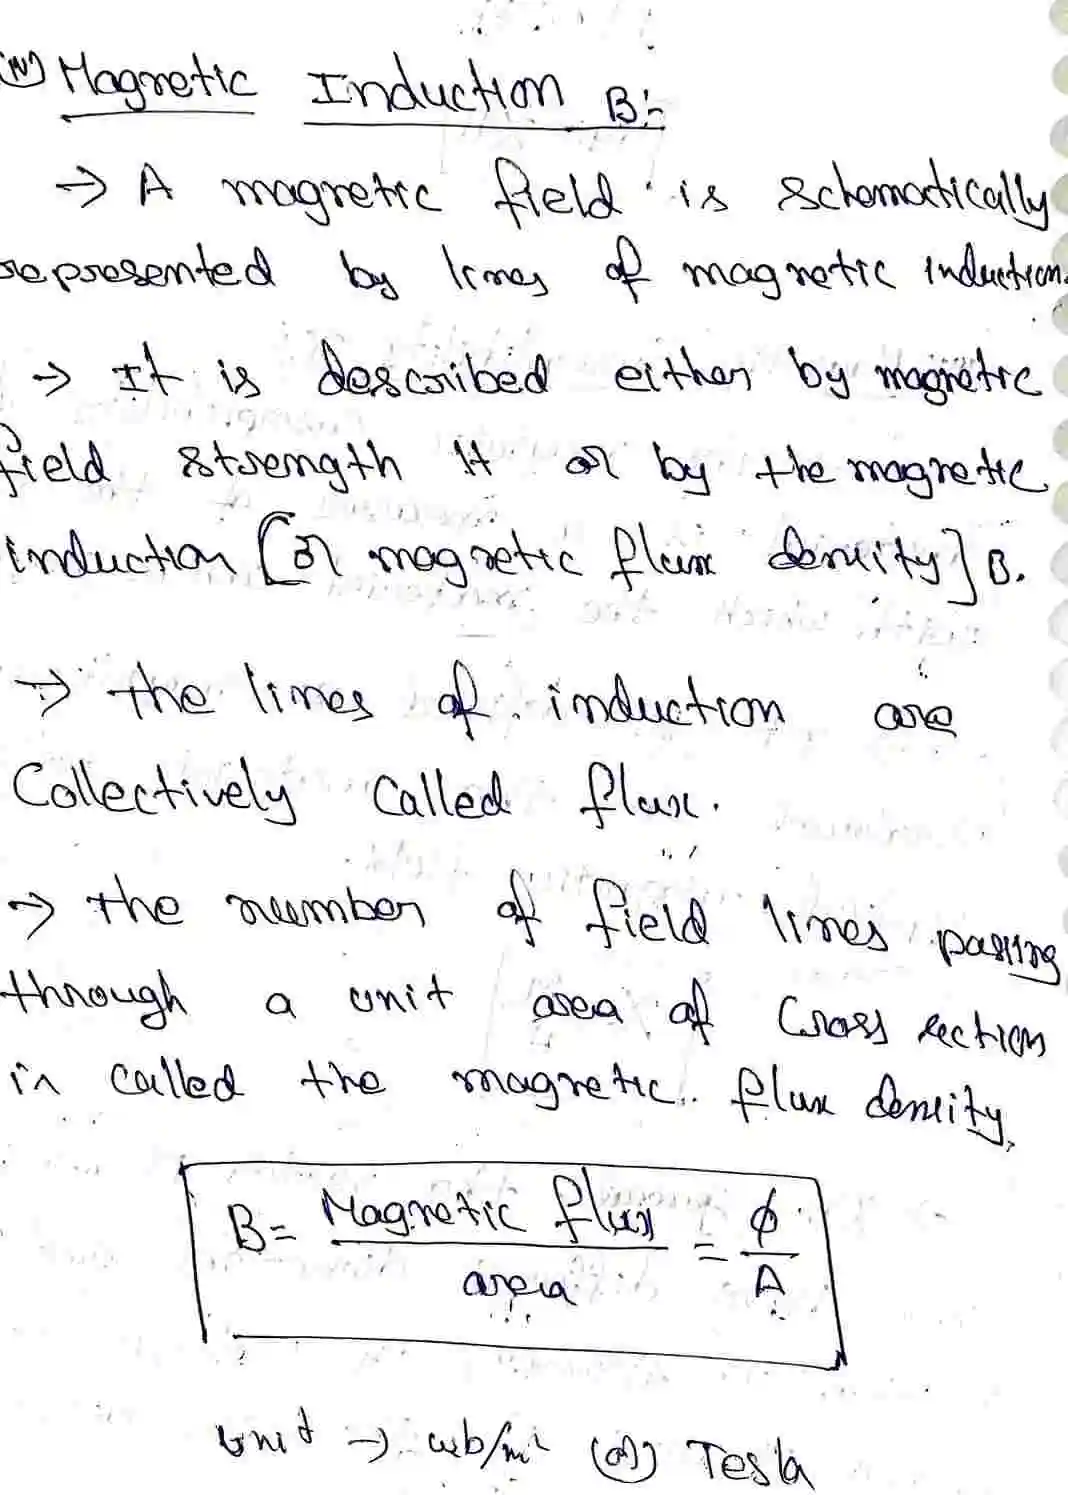 (iv) Magnetic Induction B:-
→ A magnetic field is schematically
represented by lines of magnetic induction.
→ It is described either by magnetic
field strength H or by the magnetic
induction [or magnetic flux density] B.
→ the lines of induction are
Collectively called flux.
→ the number of field lines passing
through a unit area of Cross section
is called the magnetic flux density.
B = Magnetic flux / area = ϕ / A
Unit → wb/m² (or) Tesla